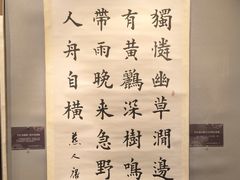 獨憐幽草澗邊
有黃鸝深樹鳴
帶雨晚来急野
人舟自橫